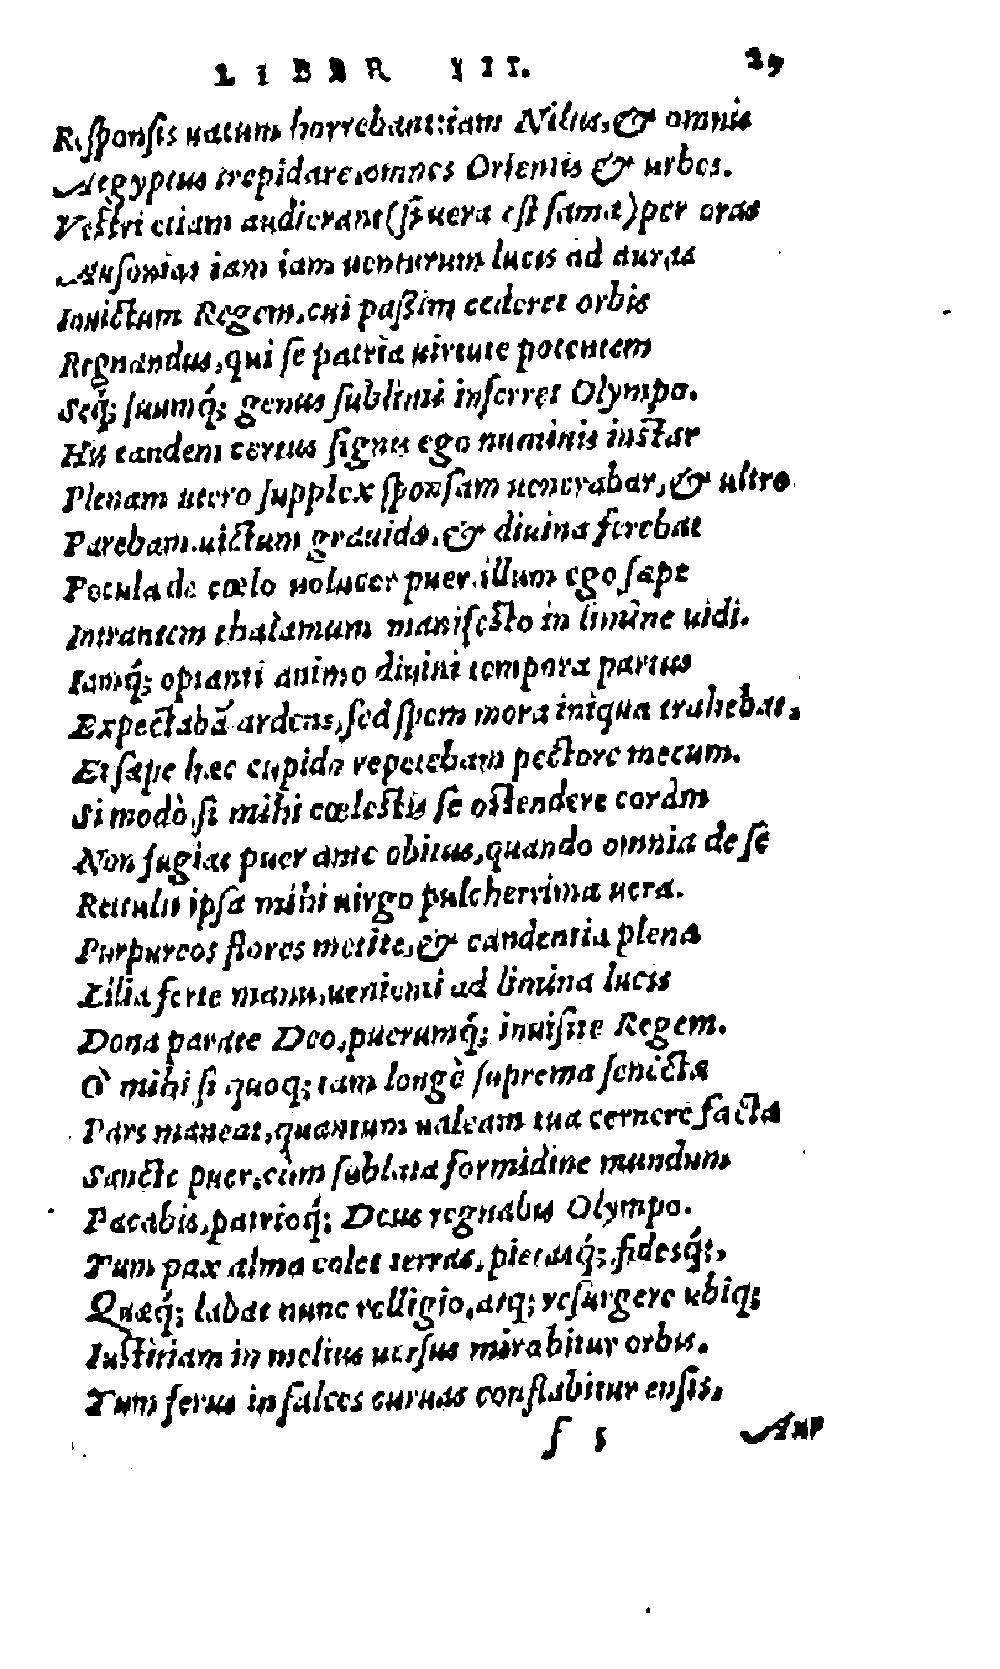 LIBER III. 29
Responsis uatum horrebant: iam Nilus, & omnis
Aegyptus trepidare, omnes Orientis & urbes.
Vestri etiam audierant (si uera est fama) per oras
Ausonias iam iam uenturum lucis ad auras
Inuictum Regem, cui passim cederet orbis
Regnandus, qui se patria uirtute potentem
Seq́; suumq́; genus sublimi inferret Olympo.
His tandem certus signis ego numinis instar
Plenam utero supplex sponsam uenerabar, & ultro
Parebam. uictum grauidæ, & diuina ferebat
Pocula de cœlo uolucer puer. illum ego sæpe
Intrantem thalamum manifesto in limine uidi.
Iamq́; optanti animo diuini tempora partus
Expectabā ardens, sed spem mora iniqua trahebat.
Et sæpe hæc cupido repetebam pectore mecum.
Si modò, si mihi cœlestis se ostendere coràm
Non fugiat puer ante obitus, quando omnia de sé
Retulit ipsa mihi uirgo pulcherrima uera.
Purpureos flores metite, & candentia plena
Lilia ferte manu, uenienti ad limina lucis
Dona parate Deo, puerumq́; inuisite Regem.
O mihi si quoq; tam longè suprema senectæ
Pars maneat, quantum ualeam tua cernere facta
Sancte puer, cùm sublata formidine mundum
Pacabis, patrioq́; Deus regnabis Olympo.
Tum pax alma colet terras, pietasq́;, fidesq́;,
Quæq́; labat nunc relligio, atq; resurgere ubiq;
Iustitiam in melius uersus mirabitur orbis.
Tum ferus in falces curuas conflabitur ensis,
f 5 Aur